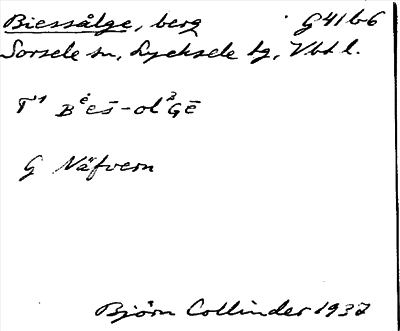 Biessålge, berg G41b6
Sorsele sn, Lycksele tg, Vbtl.
G Näfvern
Björn Collinder 1937